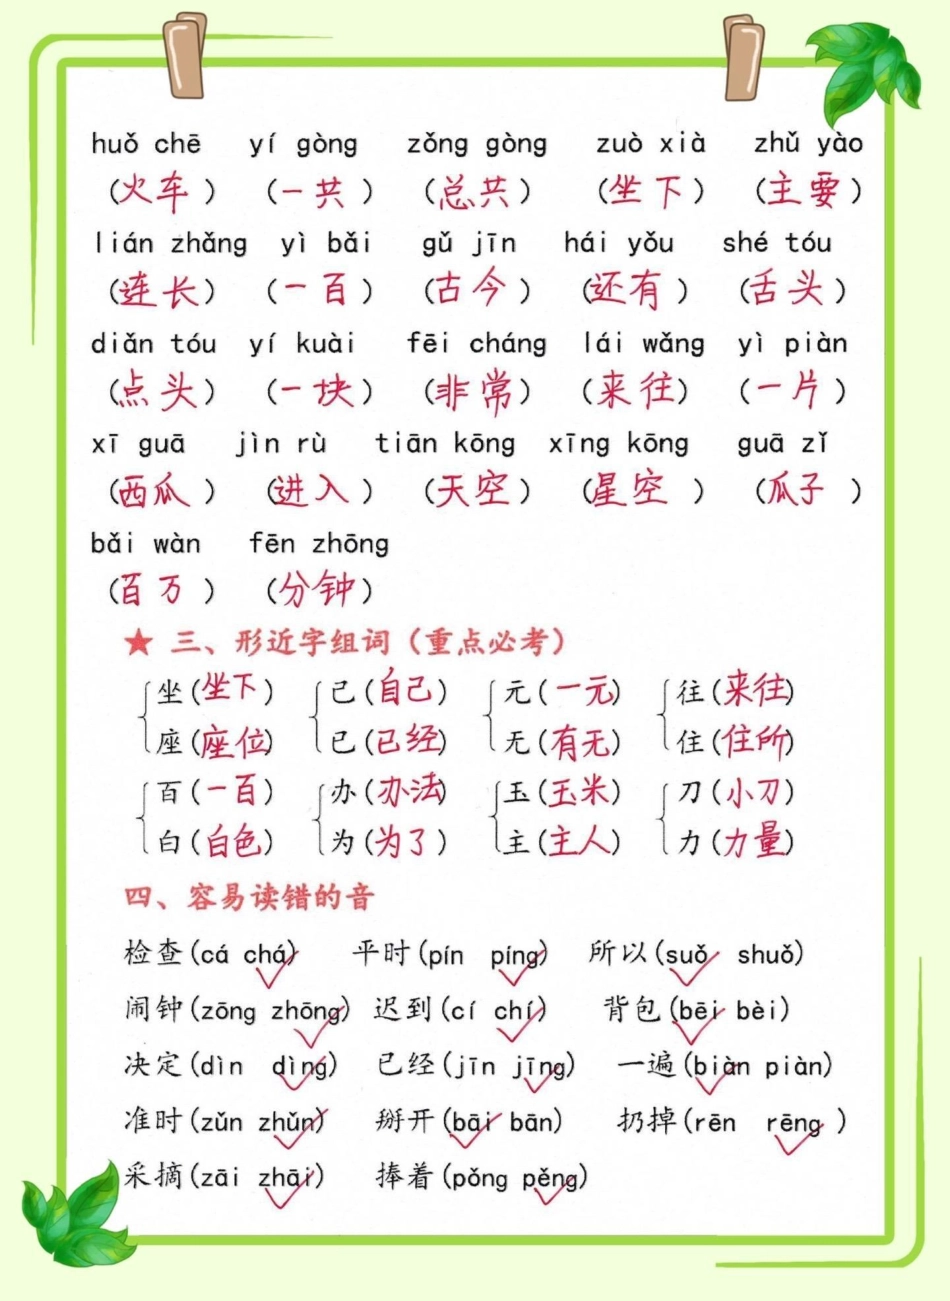 huǒ chē yí gòng zǒng gòng zuò xià zhǔ yào
(火车) (一共) (总共) (坐下) (主要)
lián zhǎng yì bǎi gǔ jīn hái yǒu shé tóu
(连长) (一百) (古今) (还有) (舌头)
diǎn tóu yí kuài fēi cháng lái wǎng yì piàn
(点头) (一块) (非常) (来往) (一片)
xī guā jìn rù tiān kōng xīng kōng guā zǐ
(西瓜) (进入) (天空) (星空) (瓜子)
bǎi wàn fēn zhōng
(百万) (分钟)
★ 三、形近字组词（重点必考）
坐(坐下) 己(自己) 元(一元) 往(来往)
座(座位) 已(已经) 无(有无) 住(住所)
百(一百) 办(办法) 玉(玉米) 刀(小刀)
白(白色) 为(为了) 主(主人) 力(力量)
四、容易读错的音
检查(cá chá) 平时(pín píng) 所以(suǒ shuǒ)
闹钟(zōng zhōng) 迟到(cí chí) 背包(bēi bèi)
决定(dìn dìng) 已经(jīn jīng) 一遍(biàn piàn)
准时(zǔn zhǔn) 掰开(bāi bān) 扔掉(rēn rēng)
采摘(zāi zhāi) 捧着(pǒng pěng)